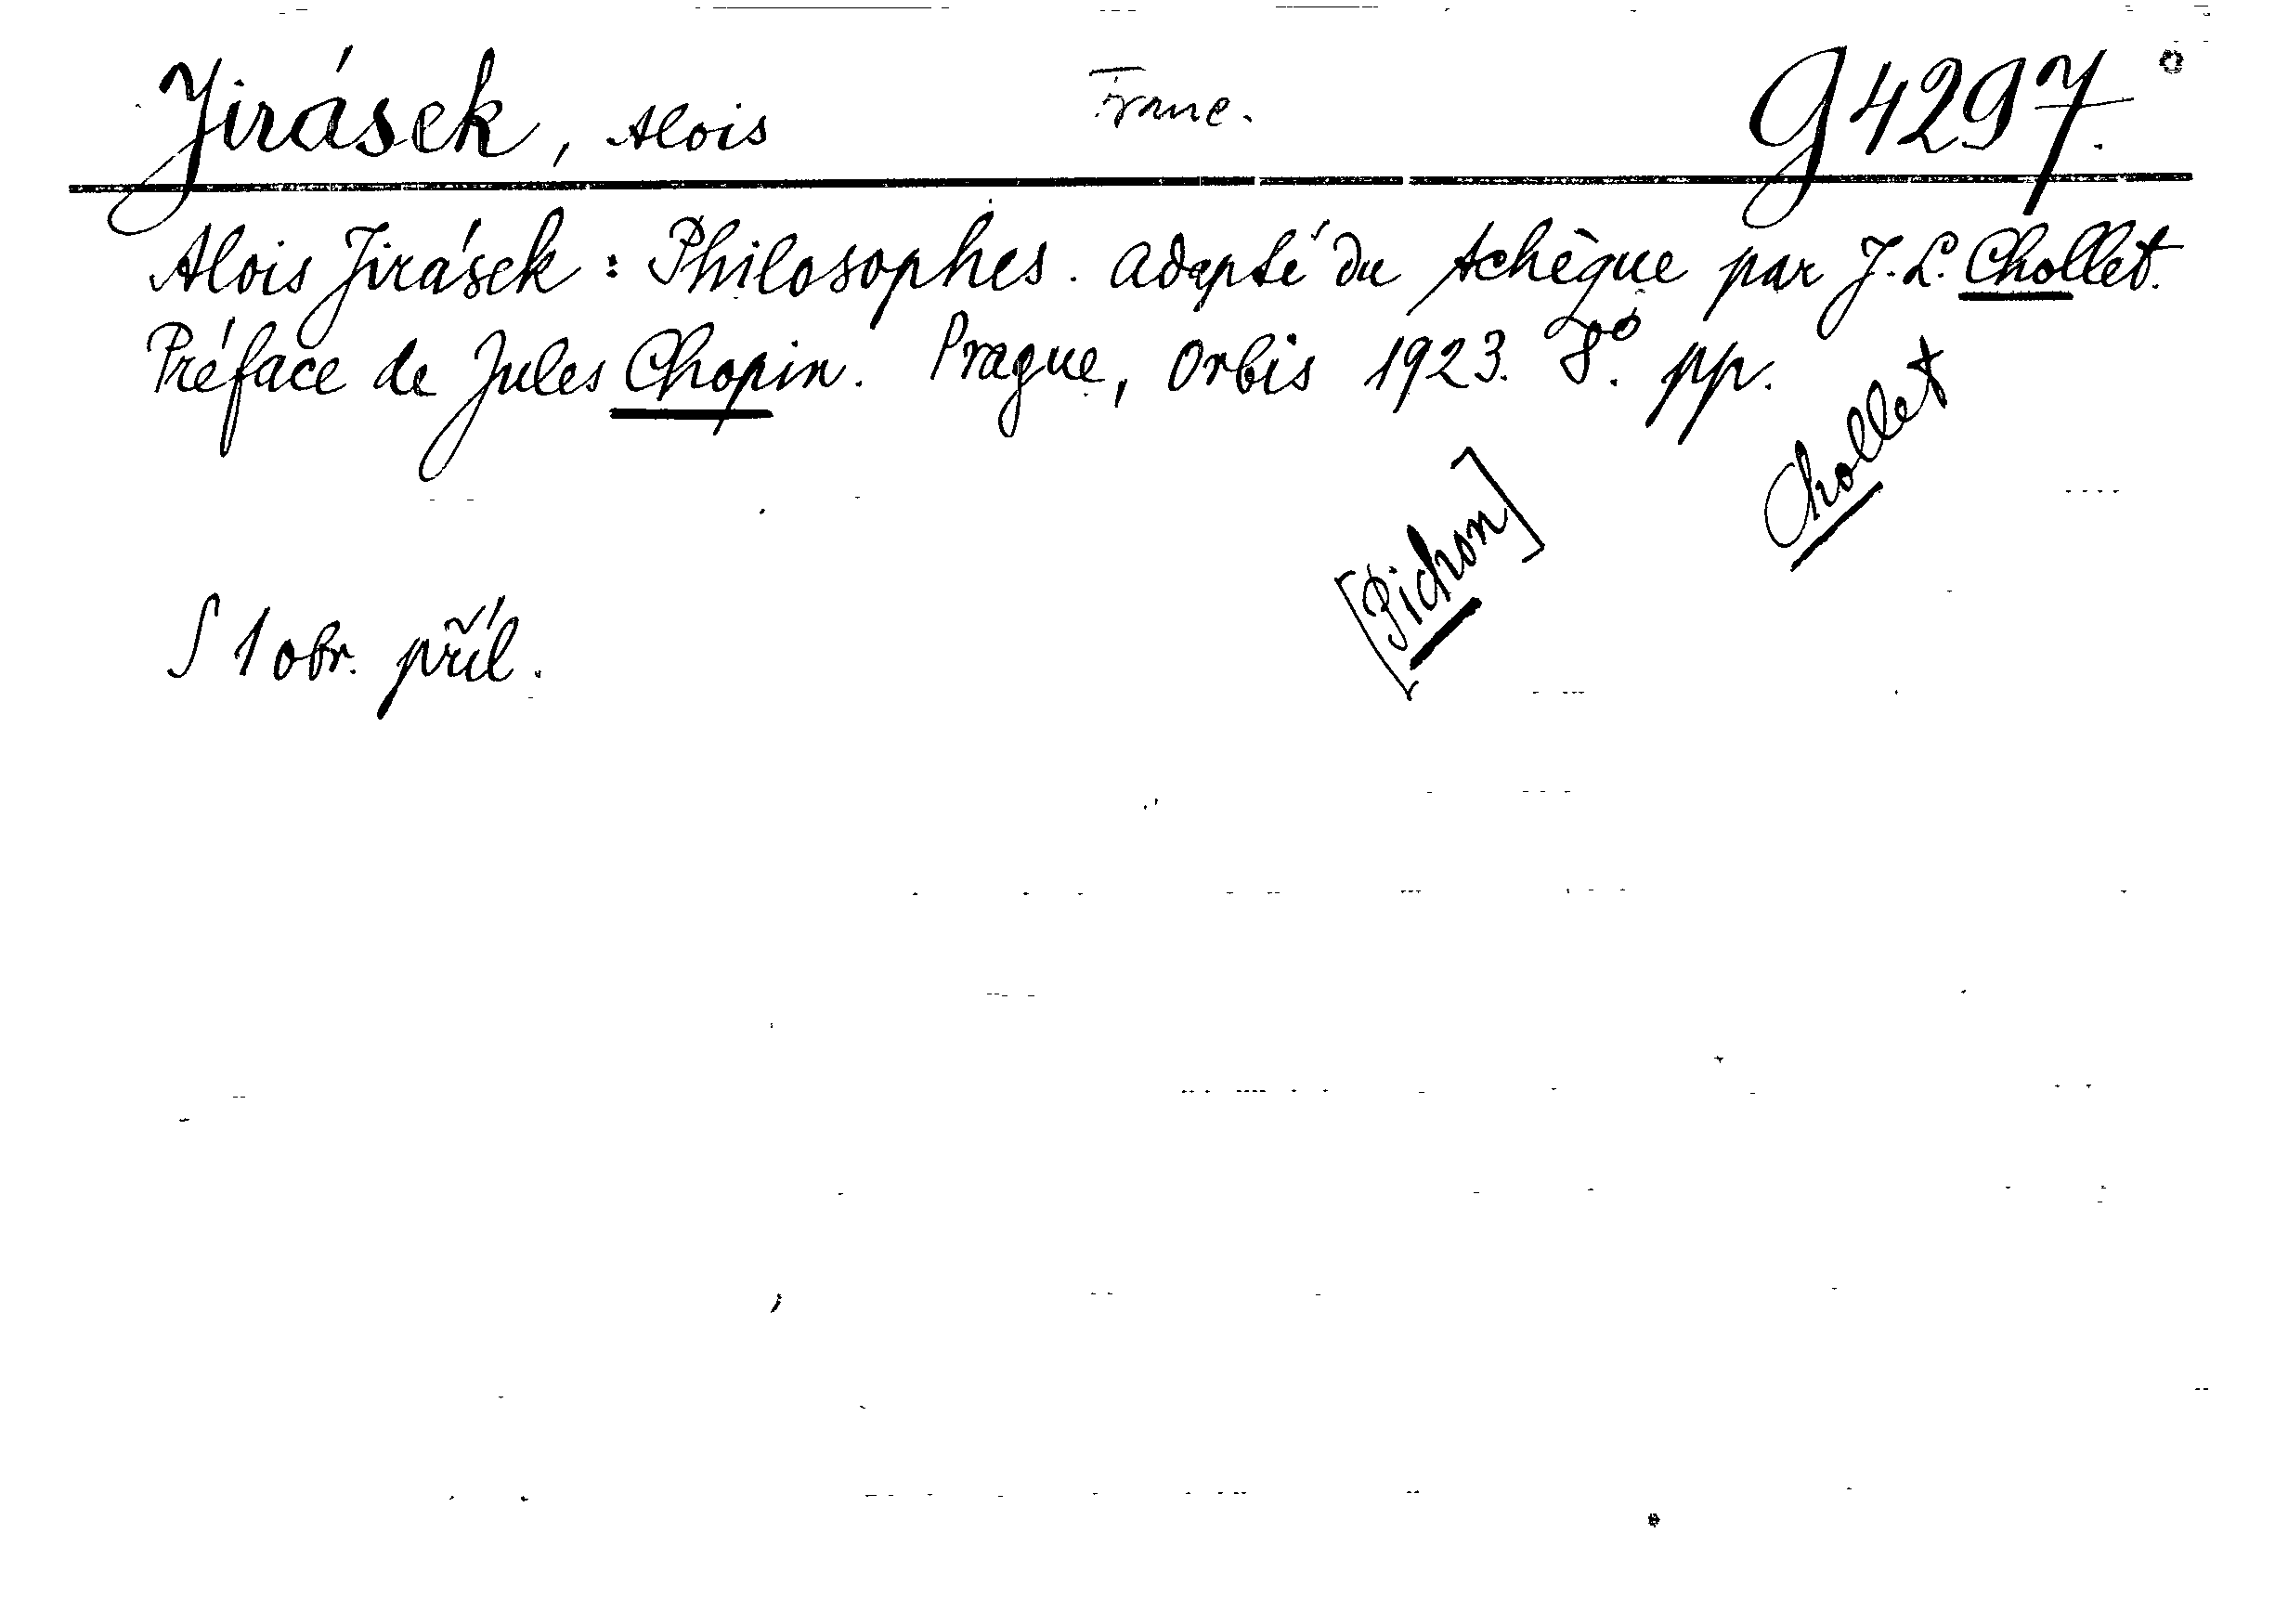 Jirásek, Alois Franc. G 4297.
Alois Jirásek: Philosophes. Adapté du tchèque par J. L. Chollet.
Préface de Jules Chopin. Prague, Orbis 1923. 8º. pp.
Chollet
[Pichon]
S 1 obr. příl.